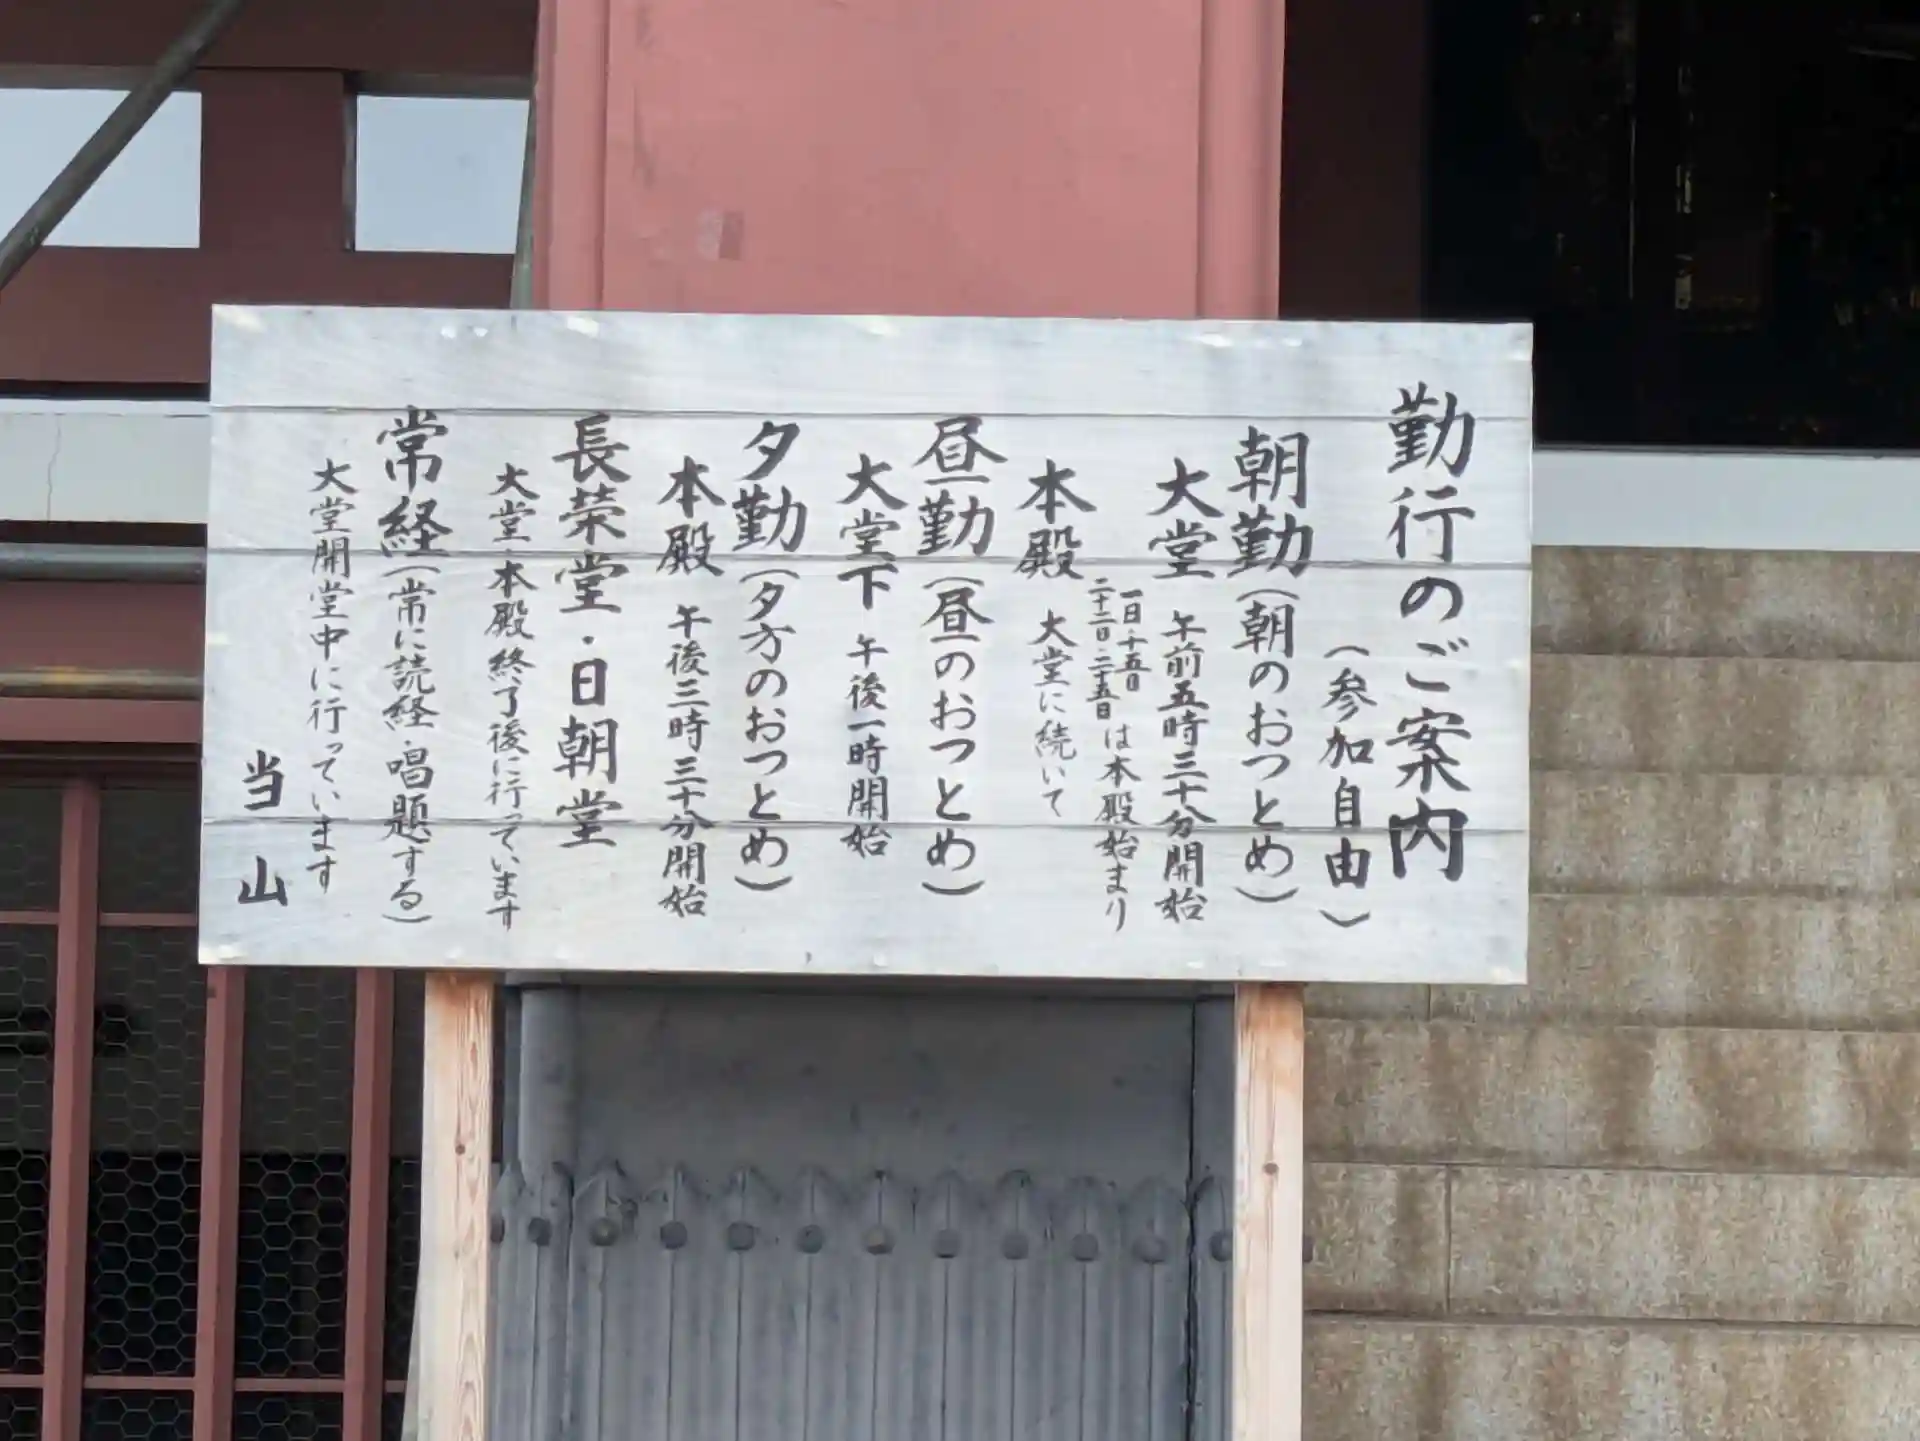 勤行のご案内
（参加自由）
朝勤（朝のおつとめ）
大堂 午前五時三十分開始
一日・十五日
二十二日・二十五日
は本殿始まり
本殿 大堂に続いて
昼勤（昼のおつとめ）
大堂下 午後一時開始
夕勤（夕方のおつとめ）
本殿 午後三時三十分開始
長栄堂・日朝堂
大堂・本殿終了後に行っています
常経（常に読経・唱題する）
大堂開堂中に行っています
当山